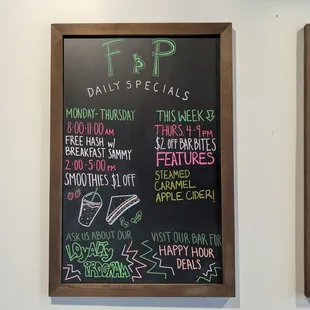 F & P
DAILY SPECIALS
MONDAY-THURSDAY
8:00-11:00 AM
FREE HASH W/
BREAKFAST SAMMY
2:00-5:00 PM
SMOOTHIES $1 OFF
THIS WEEK
THURS. 4-9 PM
$2 OFF BAR BITES
FEATURES
STEAMED
CARAMEL
APPLE CIDER!
ASK US ABOUT OUR
LOYALTY
PROGRAM
VISIT OUR BAR FOR
HAPPY HOUR
DEALS